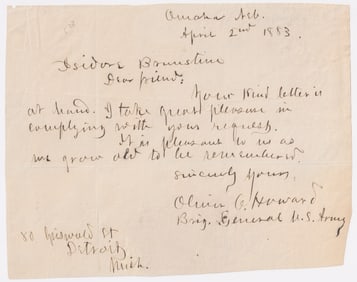 Omaha Neb.
April 2nd 1883.
Isidore Braunstine
Dear friend;
Your kind letter is
at hand. I take great pleasure in
complying with your request.
It is pleasant to us as
we grow old to be remembered.
Sincerely Yours,
Oliver O. Howard
Brig. General U.S. Army
Griswold St
Detroit
Mich.